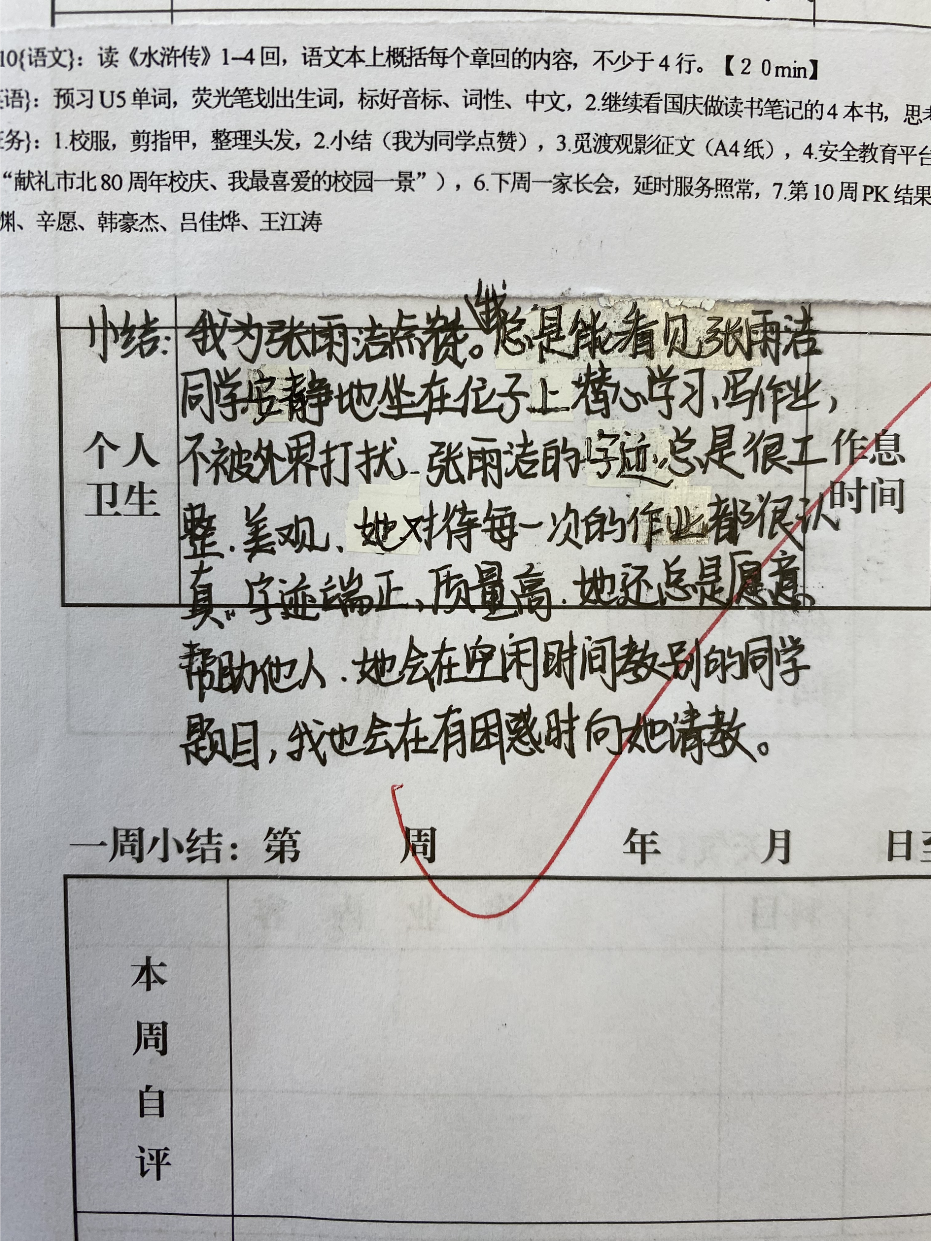 10{语文}：读《水浒传》1--4回，语文本上概括每个章回的内容，不少于4行。【20min】
语}：预习U5单词，荧光笔划出生词，标好音标、词性、中文，2.继续看国庆做读书笔记的4本书，思考
务}：1.校服，剪指甲，整理头发，2.小结（我为同学点赞），3.觅渡观影征文（A4纸），4.安全教育平台
“献礼市北80周年校庆、我最喜爱的校园一景”），6.下周一家长会，延时服务照常，7.第10周PK结果
渊、辛愿、韩豪杰、吕佳烨、王江涛
小结：我为张雨洁点赞。我总是能看见张雨洁
同学安静地坐在位子上精心学习、写作业，
不被外界打扰。张雨洁的字迹总是很工
整、美观、她对待每一次的作业都很认
真。字迹端正、质量高。她还总是愿意
帮助他人。她会在空闲时间教别的同学
题目，我也会在有困惑时向她请教。
个人卫生
作息时间
一周小结：第 周 年 月 日至
本周自评